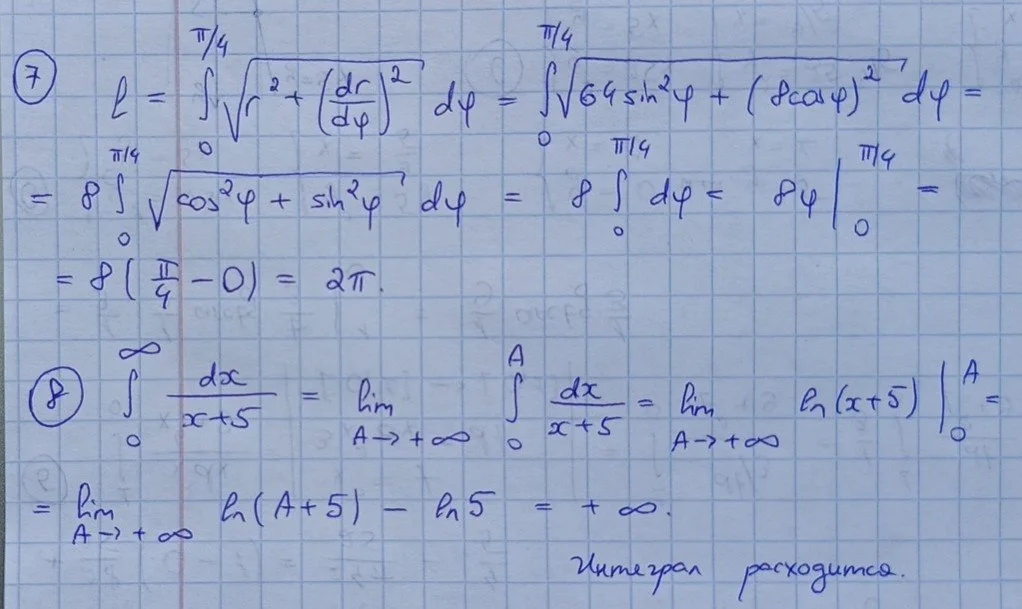 7 ℓ = ∫₀^{π/4} √(r² + (dr/dφ)²) dφ = ∫₀^{π/4} √(64 sin²φ + (8cosφ)²) dφ =
= 8 ∫₀^{π/4} √(cos²φ + sin²φ) dφ = 8 ∫₀^{π/4} dφ = 8φ |₀^{π/4} =
= 8 (π/4 − 0) = 2π.
8 ∫₀^∞ dx/(x+5) = lim_{A→+∞} ∫₀^A dx/(x+5) = lim_{A→+∞} ln(x+5) |₀^A =
= lim_{A→+∞} ln(A+5) − ln5 = +∞.
Интеграл расходится.